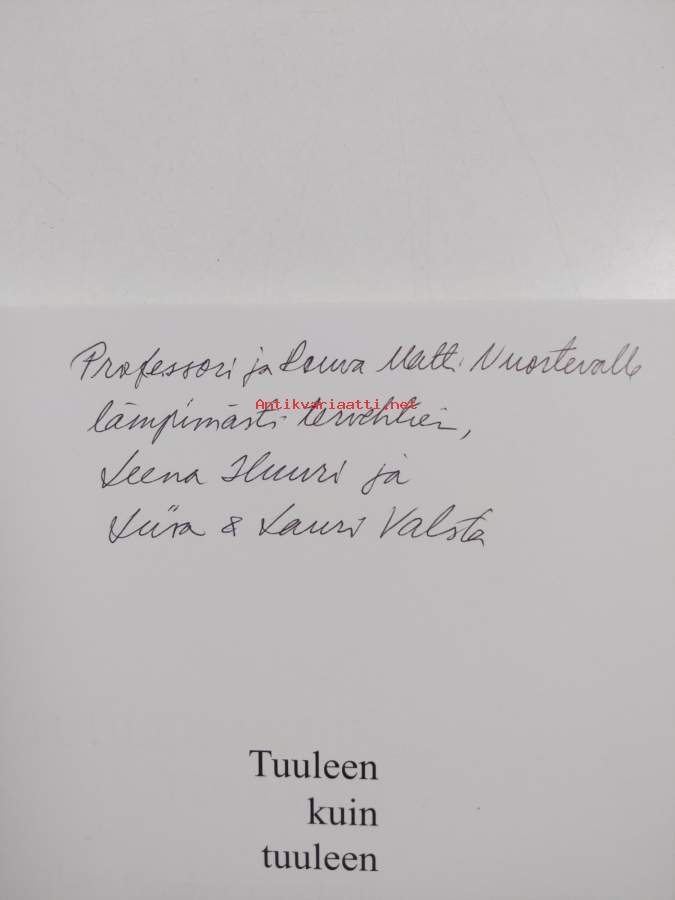 Professori ja Rouva Matti Nuortevalle
lämpimästi tervehtien,
Antikvariaatti.net
Leena Huuri ja
Liisa & Lauri Valsta
Tuuleen
kuin
tuuleen